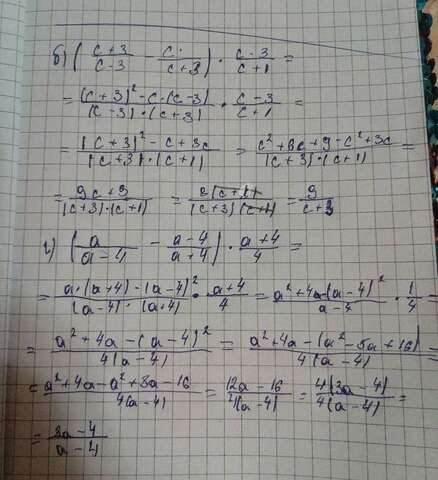 б) ( (c+3)/(c-3) - c/(c+3) ) · (c-3)/(c+1) =
= ((c+3)² - c·(c-3))/((c-3)·(c+3)) · (c-3)/(c+1) =
= ((c+3)² - c + 3c)/((c+3)·(c+1)) = (c²+6c+9-c²+3c)/((c+3)·(c+1)) =
= (9c+9)/((c+3)·(c+1)) = (c+1)/((c+3)(c+1)) = 9/(c+3)
г) ( a/(a-4) - (a-4)/(a+4) ) · (a+4)/4 =
= (a·(a+4)-(a-4)²)/((a-4)·(a+4)) · (a+4)/4 = (a²+4a-(a-4)²)/(a-4) · 1/4 =
= (a²+4a-(a-4)²)/(4(a-4)) = (a²+4a-(a²-8a+16))/(4(a-4)) =
= (a²+4a-a²+8a-16)/(4(a-4)) = (12a-16)/(4(a-4)) = (4(3a-4))/(4(a-4)) =
= (3a-4)/(a-4)